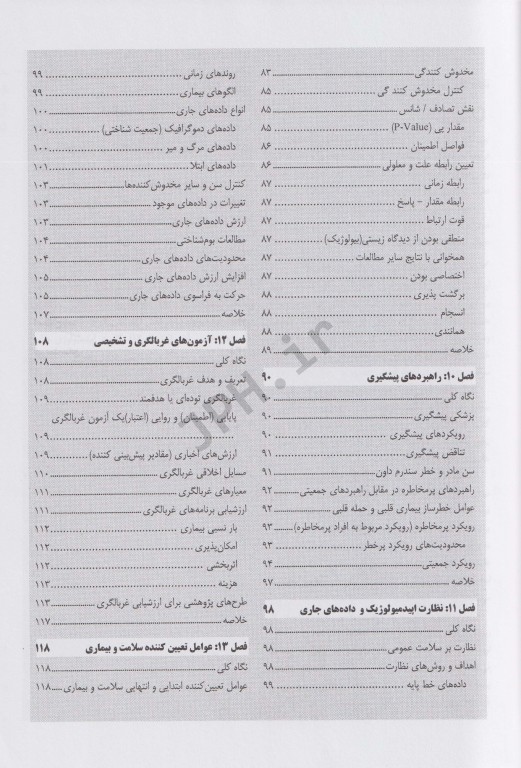 مخدوش کنندگی ۸۳
کنترل مخدوش کنند گی ۸۵
نقش تصادف / شانس ۸۵
مقدار پی (P-Value) ۸۵
فواصل اطمینان ۸۶
تعیین رابطه علت و معلولی ۸۶
رابطه زمانی ۸۷
رابطه مقدار - پاسخ ۸۷
قوت ارتباط ۸۷
منطقی بودن از دیدگاه زیستی(بیولوژیک) ۸۷
همخوانی با نتایج سایر مطالعات ۸۷
اختصاصی بودن ۸۷
برگشت پذیری ۸۸
انسجام ۸۸
همانندی ۸۸
خلاصه ۸۹
فصل ۱۰: راهبردهای پیشگیری ۹۰
نگاه کلی ۹۰
پزشکی پیشگیری ۹۰
رویکردهای پیشگیری ۹۰
تناقض پیشگیری ۹۱
سن مادر و خطر سندرم داون ۹۱
راهبردهای پرمخاطره در مقابل راهبردهای جمعیتی ۹۲
عوامل خطرساز بیماری قلبی و حمله قلبی ۹۲
رویکرد پرمخاطره (رویکرد مربوط به افراد پرمخاطره) ۹۳
محدودیت‌های رویکرد پرخطر ۹۳
رویکرد جمعیتی ۹۴
خلاصه ۹۷
فصل ۱۱: نظارت اپیدمیولوژیک و داده‌های جاری ۹۸
نگاه کلی ۹۸
نظارت بر سلامت عمومی ۹۸
اهداف و روش‌های نظارت ۹۸
داده‌های خط پایه ۹۹
روندهای زمانی ۹۹
الگوهای بیماری ۹۹
انواع داده‌های جاری ۱۰۰
داده‌های دموگرافیک (جمعیت شناختی) ۱۰۰
داده‌های مرگ و میر ۱۰۰
داده‌های ابتلا ۱۰۱
کنترل سن و سایر مخدوش‌کننده‌ها ۱۰۳
تغییرات در داده‌های موجود ۱۰۳
ارزش داده‌های جاری ۱۰۳
مطالعات بوم‌شناختی ۱۰۴
محدودیت‌های داده‌های جاری ۱۰۴
افزایش ارزش داده‌های جاری ۱۰۵
حرکت به فراسوی داده‌های جاری ۱۰۵
خلاصه ۱۰۷
فصل ۱۲: آزمون‌های غربالگری و تشخیصی ۱۰۸
نگاه کلی ۱۰۸
تعریف و هدف غربالگری ۱۰۸
غربالگری توده‌ای یا هدفمند ۱۰۹
پایایی (اطمینان) و روایی (اعتبار)یک آزمون غربالگری
۱۰۹
ارزش‌های اخباری (مقادیر پیش‌بینی کننده) ۱۰۹
مسایل اخلاقی غربالگری ۱۱۰
معیارهای غربالگری ۱۱۱
ارزشیابی برنامه‌های غربالگری ۱۱۱
بار نسبی بیماری ۱۱۲
امکان‌پذیری ۱۱۲
اثربخشی ۱۱۲
هزینه ۱۱۳
طرح‌های پژوهشی برای ارزشیابی غربالگری ۱۱۳
خلاصه ۱۱۷
فصل ۱۳: عوامل تعیین کننده سلامت و بیماری ۱۱۸
نگاه کلی ۱۱۸
عوامل تعیین‌کننده ابتدایی و انتهایی سلامت و بیماری ۱۱۸
JPH.ir